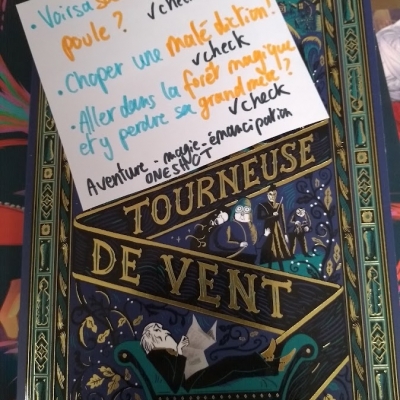 • Voir sa
poule ? ✓check
• Choper une malédiction !
✓check
• Aller dans la forêt magique
et y perdre sa grand mère ?
✓check
Aventure - magie - émancipation
ONESHOT
TOURNEUSE
DE VENT